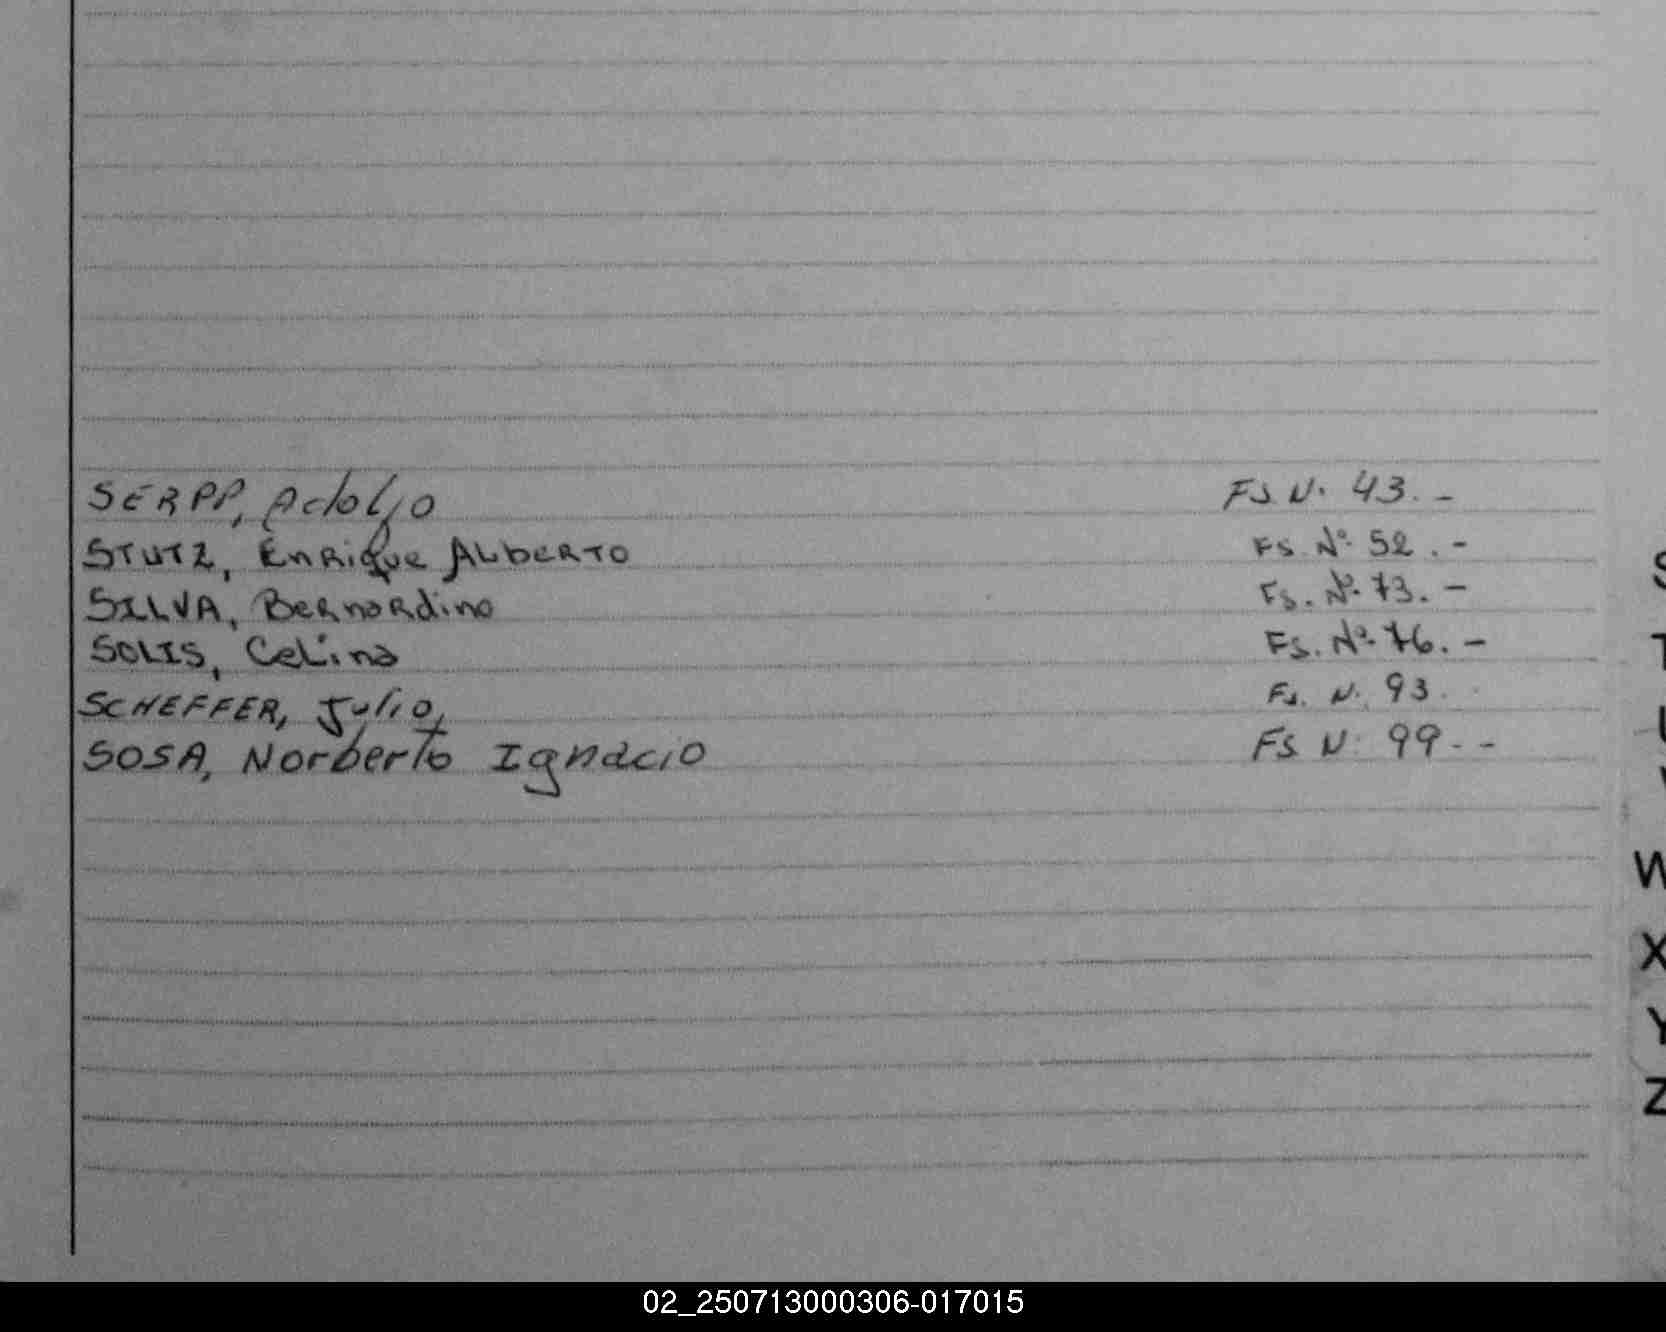 SERPP, Adolfo FS N. 43.-
STUTZ, Enrique ALBERTO Fs. Nº 52.-
SILVA, Bernardino Fs. Nº 73.-
SOLIS, Celina Fs. Nº 76.-
SCHEFFER, Julio, Fs. N. 93.
SOSA, Norberto Ignacio FS N. 99.--
S
T
U
V
W
X
Y
Z
02_250713000306-017015